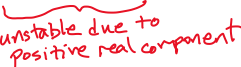 unstable due to
positive real component